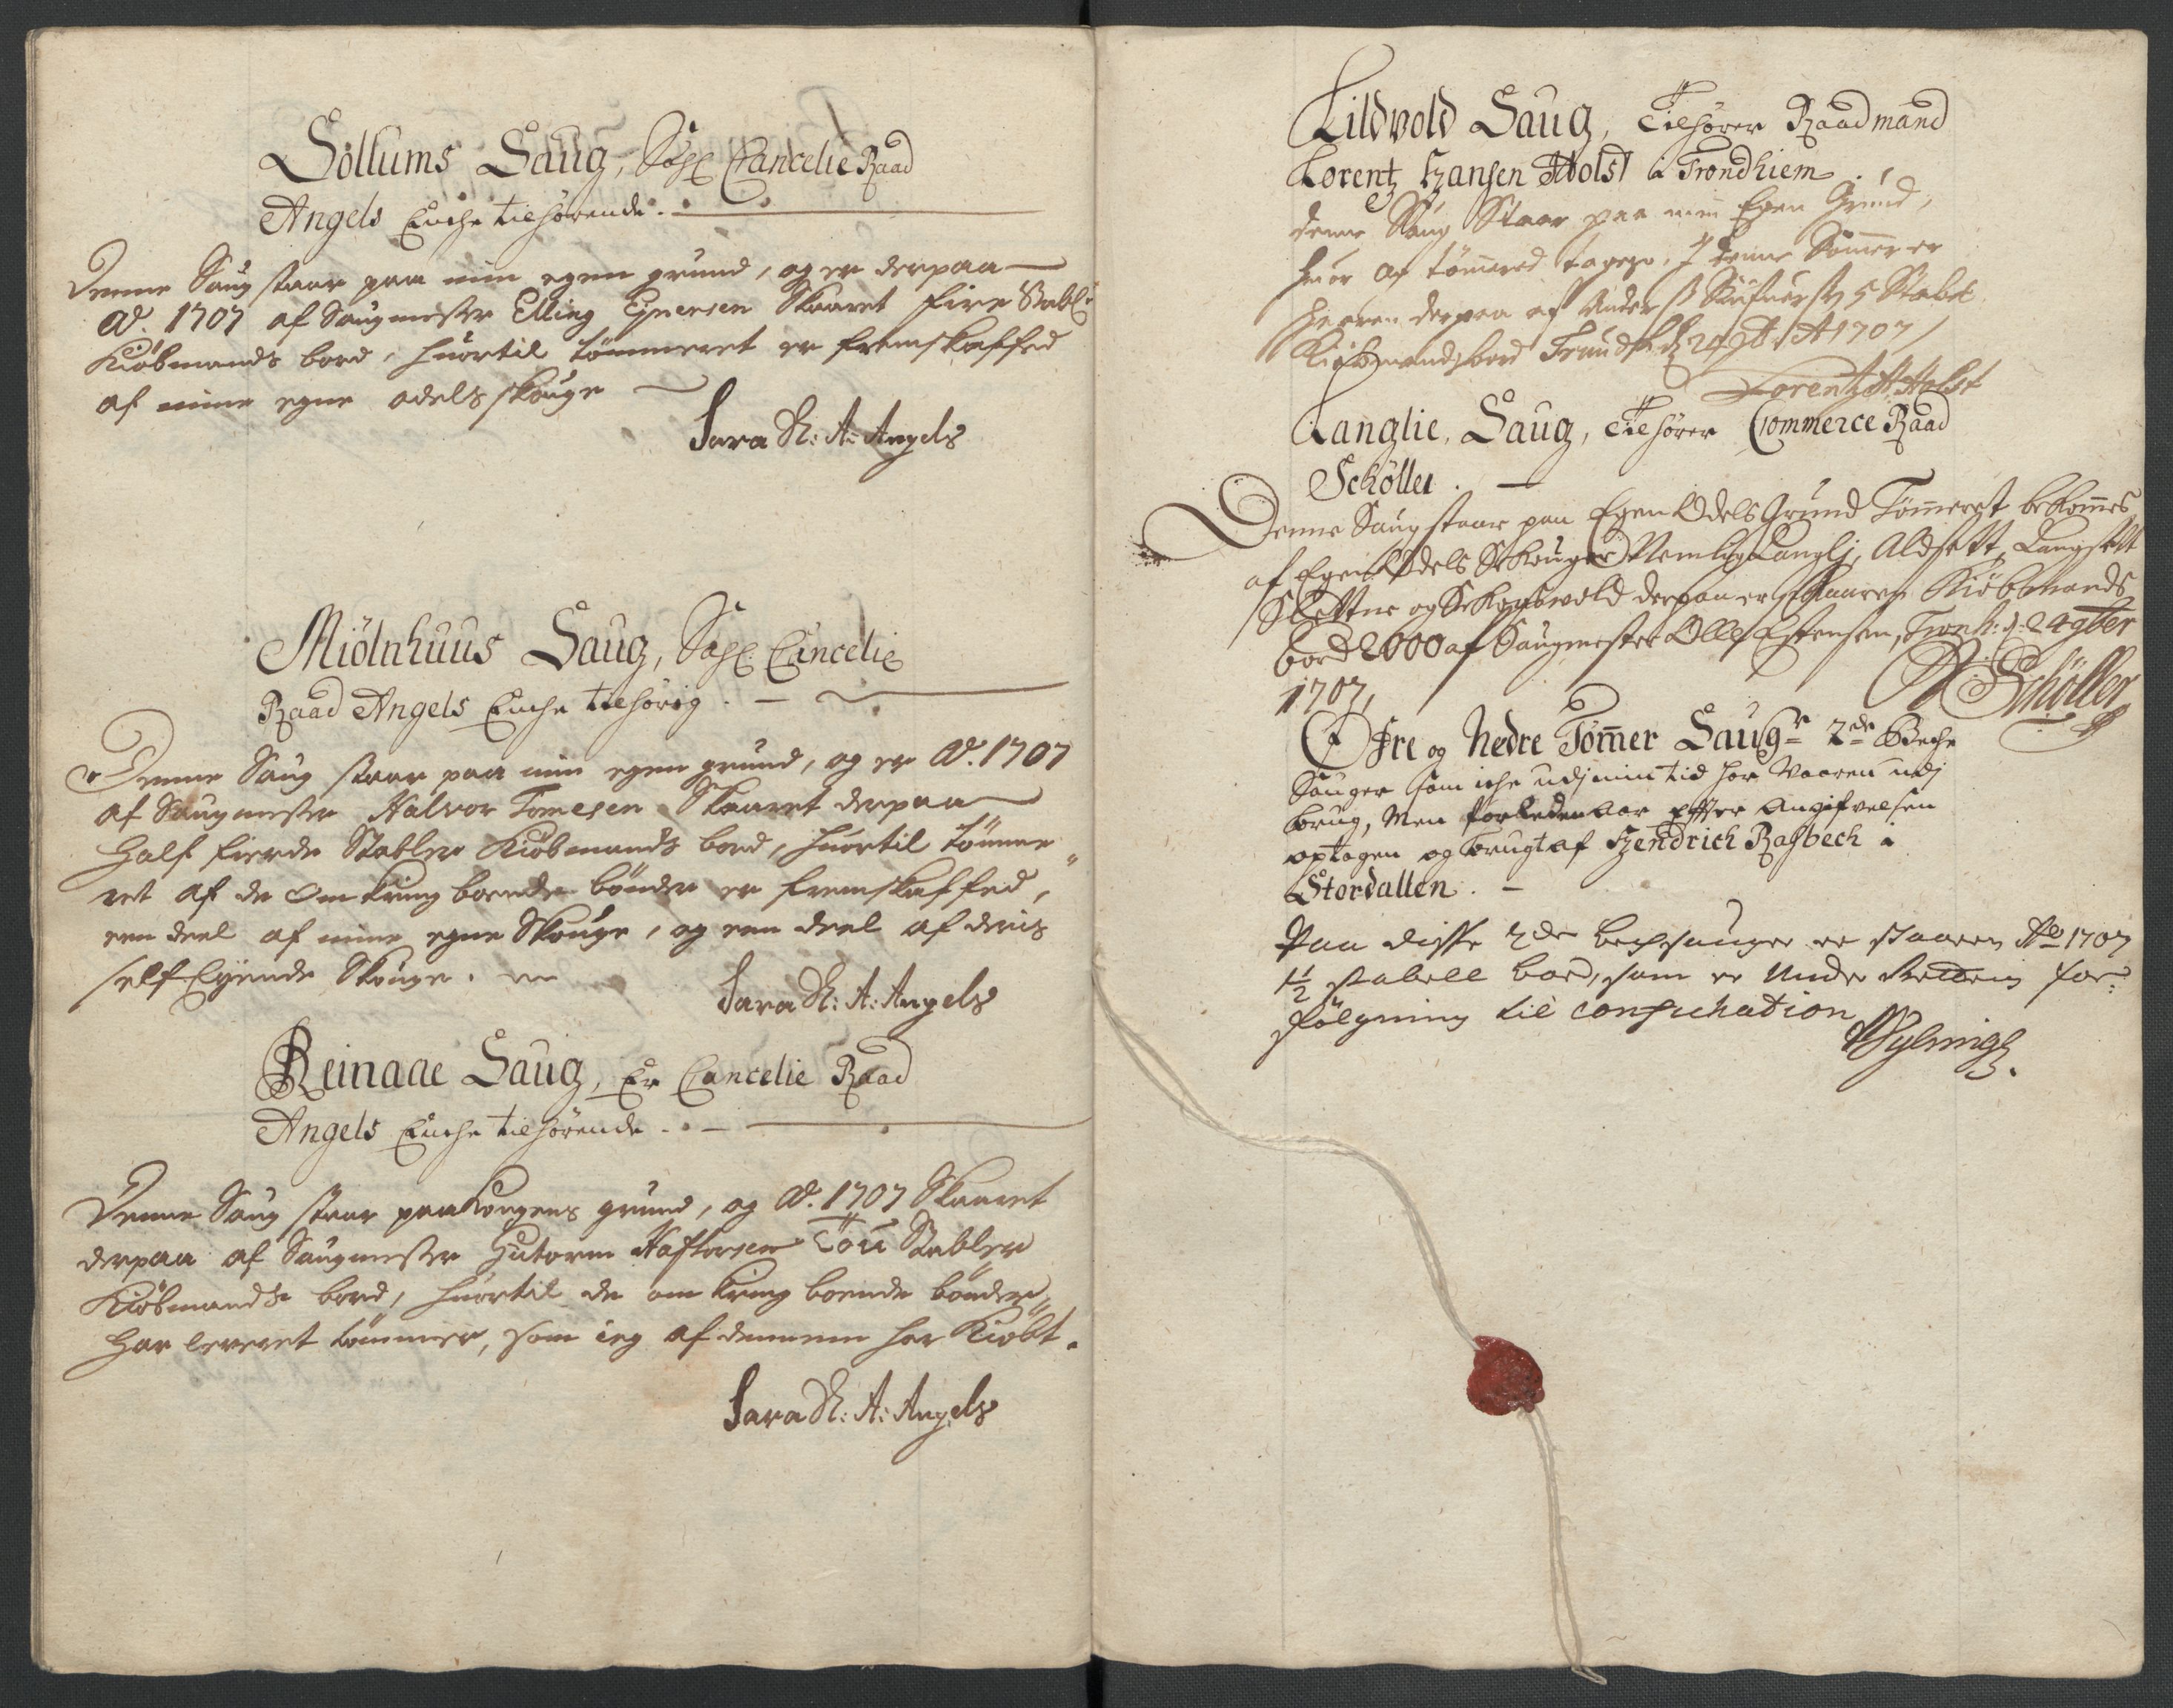 Sollums Saug, Sahl. Cancelie Raad
Angels Enche tilhørende.
Denne Saug staar paa min egen grund, og er derpaa
Ao. 1707 af Saugmester Elling Ejnersen Skaaret fire Stabl:
Kiøbmands bord, huortil tømmeret er fremskaffed
af mine egne odels skouge
Sara Sl: A: Angels
Miölnhuus Saug, Sahl. Cancelie
Raad Angels Enche tilhørig.
Denne Saug staar paa min egen grund, og er Ao. 1707
af Saugmester Halvor Tomesen Skaaret derpaa
Half fierde Stabler Kiøbmands bord, huortil tømme
ret af de omkring boende bønder er fremskaffed,
een deel af mine egne Skouge, og een deel af deris
self Eyende Skouge.
Sara Sl: A: Angels
Reinaae Saug, Er Cancelie Raad
Angels Enche tilhørende.
Denne Saug staar paa Kongens grund, og Ao. 1707 Skaaret
derpaa af Saugmester Gutorm Haftorsen Tou Stabler
Kiøbmands bord, huortil de omkring boende bönder
har leveret tømmer, som ieg af dennem har Kiøbt.
Sara Sl: A: Angels
Lildvold Saug, Tilhører Raadmand
Lorentz Hansen Holst i Trondhiem
denne Saug Staar paa min Egen Grund,
huor af tømmered tages, J denne Sommer er
skaaren derpaa af Anders 5 Stabel
Kiøbmandsbord Trundh. d. 24 9br. A 1707
Lorentz H Holst
Langlie Saug, Tilhører Commerce Raad
Schøller.
Denne Saug staar paa Egen Odels Grund Tømmeret bekommes
af Egen Odels Schouger Nemlig Langlj, Aldsett, Langsett
Slettne og Schougvold derpaa er Skaaren Kiøbmands
bord 2000 af Saugmester Olle Estensen, Tronh: d: 24 9ber
1707,
Schøller
Øfre og Nedre Tømmer Saugr 2de Beche
Sauger som iche udj min tid har Vaaren udj
brug, Men forleden Aar Efter Angifvelsen
optagen og brugt af Hendrich Rasbech i
Stordallen.
Paa disse 2de bechsauger er skaaren Ao 1707
1½ stabell bord, som er Under Rettens for:
følgning til confischation